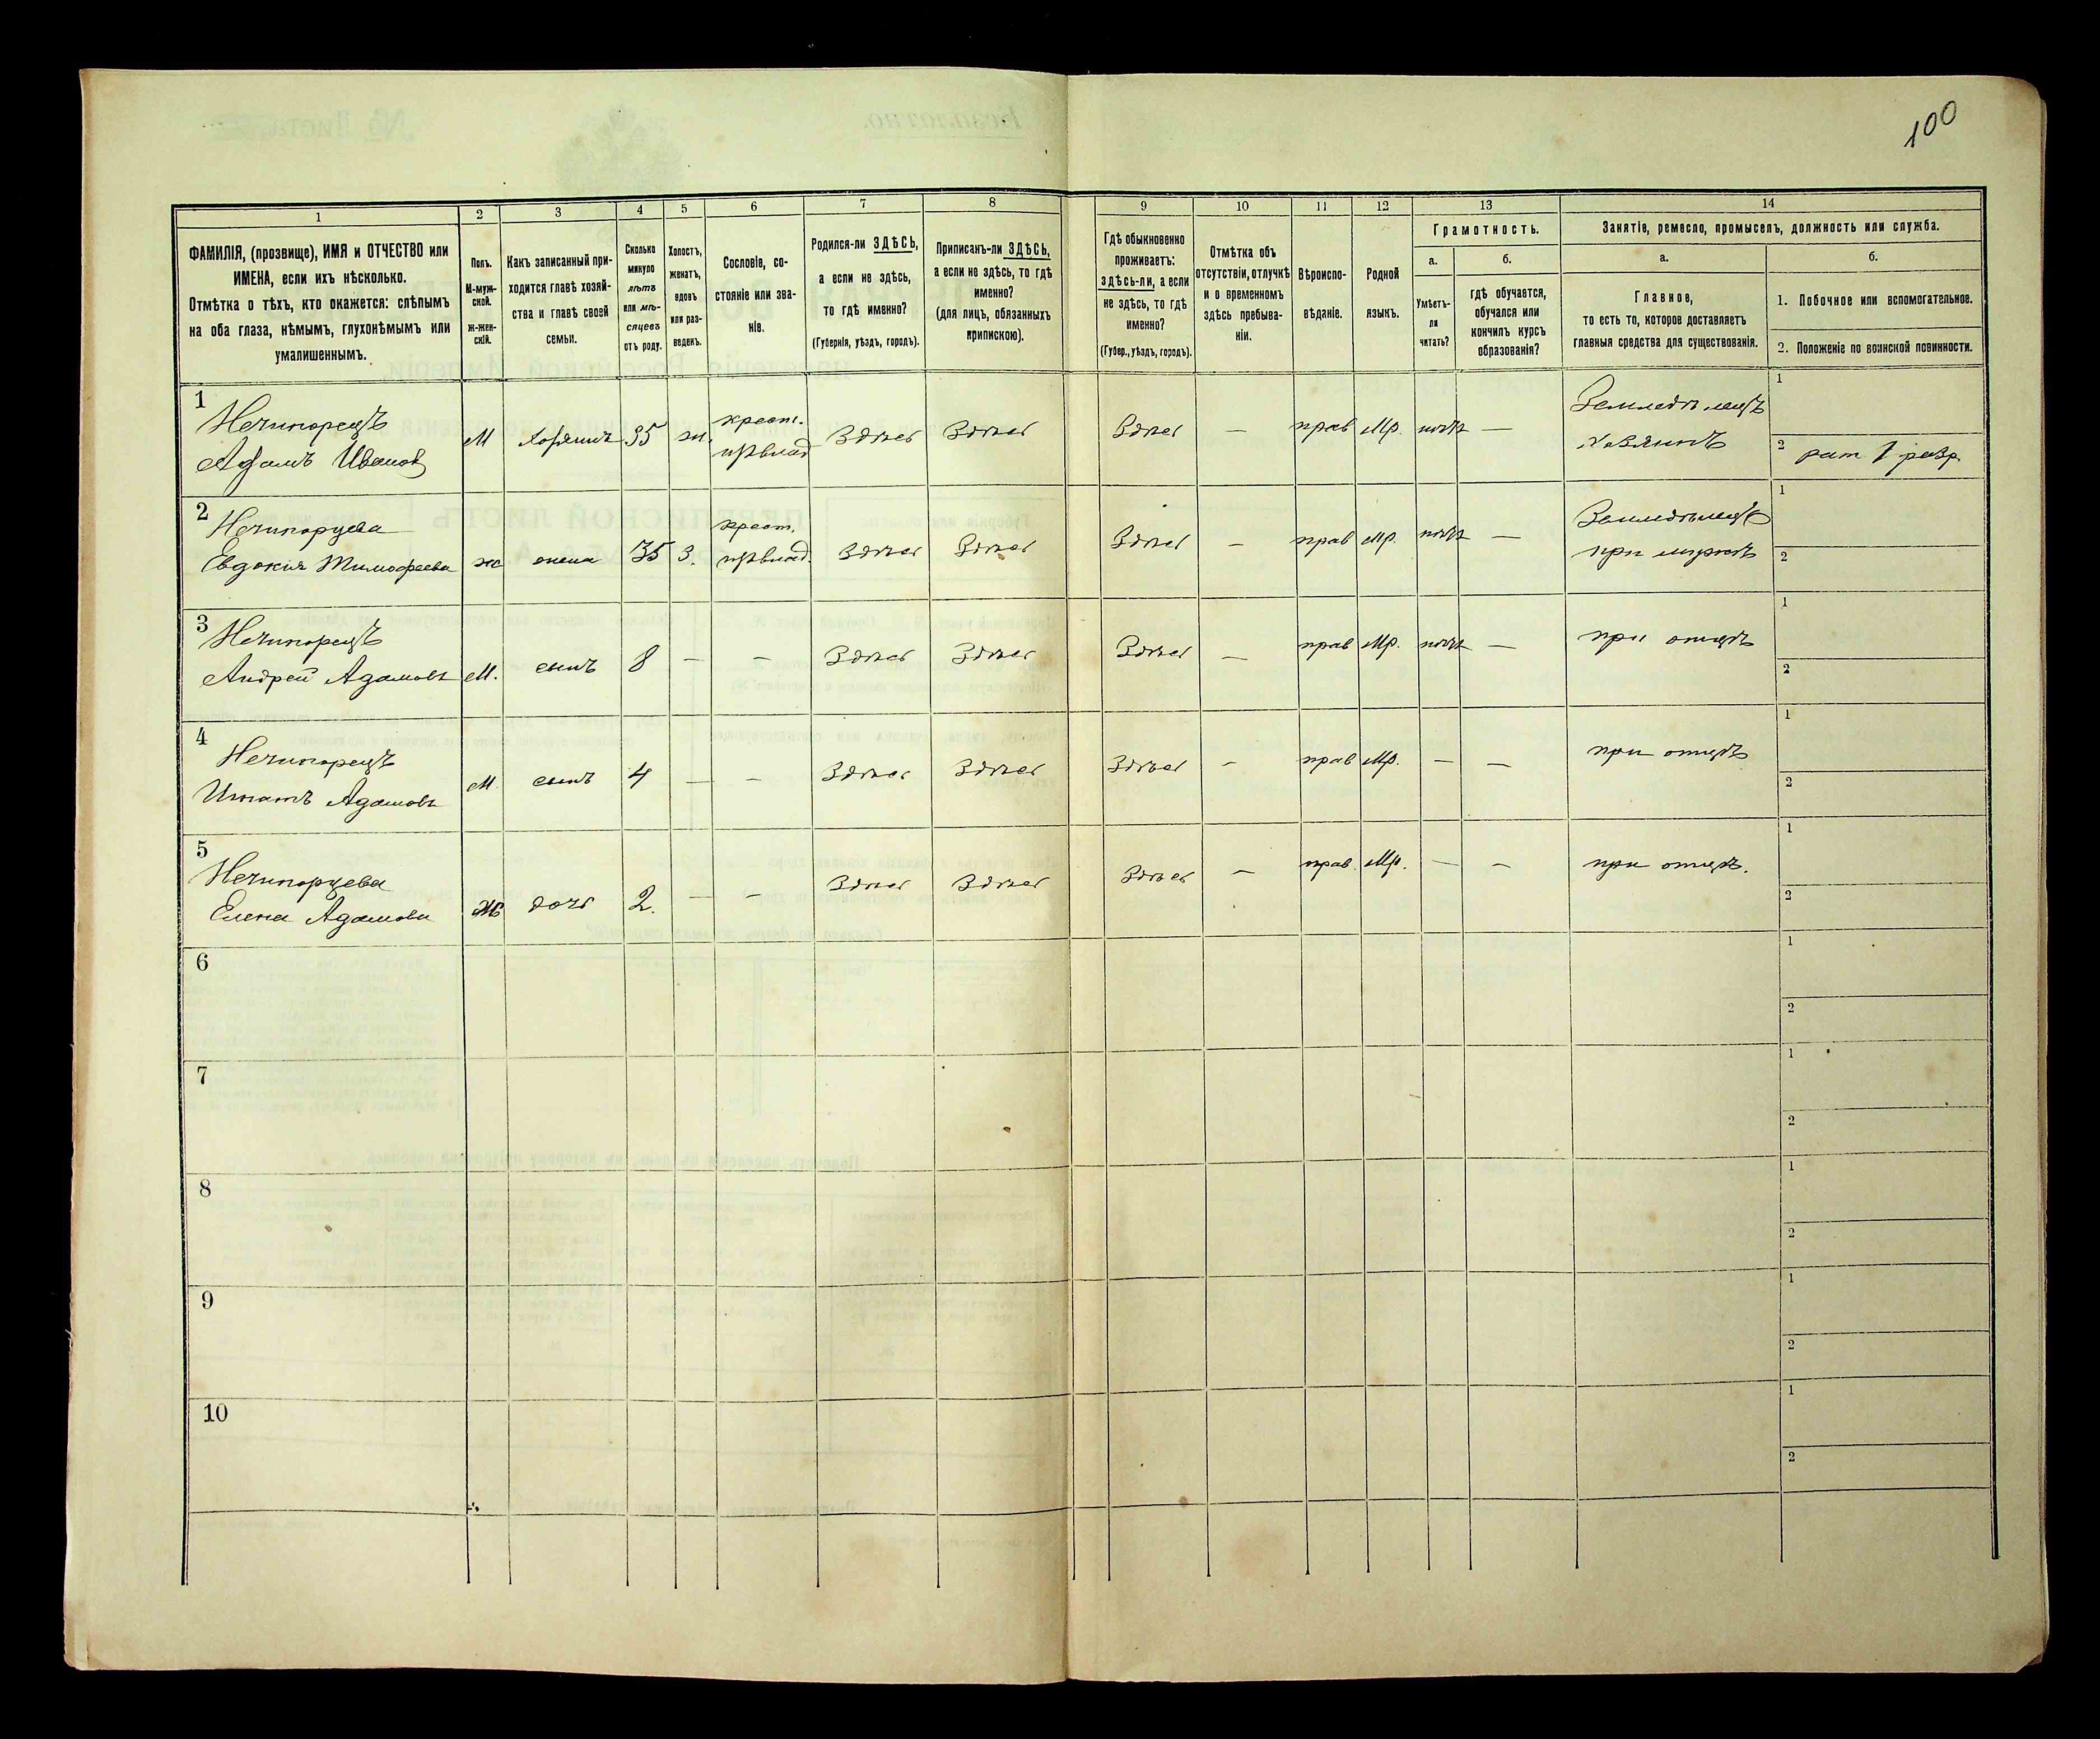 100
1 2 3 4 5 6 7 8 9 10 11 12 13 14
ФАМИЛІЯ, (прозвище), ИМЯ и ОТЧЕСТВО или
ИМЕНА, если ихъ нѣсколько.
Отмѣтка о тѣхъ, кто окажется: слѣпымъ
на оба глаза, нѣмымъ, глухонѣмымъ или
умалишеннымъ.
Полъ.
М-муж-
ской.
ж-жен-
скій.
Какъ записанный при-
ходится главѣ хозяй-
ства и главѣ своей
семьи.
Сколько
минуло
лѣтъ
или мѣ-
сяцевъ
отъ роду.
Холостъ,
женатъ,
вдовъ
или раз-
веденъ.
Сословіе, со-
стояніе или зва-
ніе.
Родился-ли ЗДѢСЬ,
а если не здѣсь,
то гдѣ именно?
(Губернія, уѣздъ, городъ).
Приписанъ-ли ЗДѢСЬ,
а если не здѣсь, то гдѣ
именно?
(для лицъ, обязанныхъ
припискою).
Гдѣ обыкновенно
проживаетъ:
здѣсь-ли, а если
не здѣсь, то гдѣ
именно?
(Губер., уѣздъ, городъ).
Отмѣтка объ
отсутствіи, отлучкѣ
и о временномъ
здѣсь пребыва-
ніи.
Вѣроиспо-
вѣданіе.
Родной
языкъ.
Грамотность.
а.
Умѣетъ-
ли
читать?
б.
гдѣ обучается,
обучался или
кончилъ курсъ
образованія?
Занятіе, ремесло, промыселъ, должность или служба.
а.
Главное,
то есть то, которое доставляетъ
главныя средства для существованія.
б.
1. Побочное или вспомогательное.
2. Положеніе по воинской повинности.
1
Нечипорецъ
Адамъ Ивановъ
М
хозяинъ
35
ж.
крест.
Здѣсь
Здѣсь
Здѣсь
—
прав
Мр.
нѣтъ
—
Земледѣлецъ
хозяинъ
1
2 рат 1 разр.
2
Нечипорцева
Евдокія Тимофеева
ж
жена
35
З.
крест.
Здѣсь
Здѣсь
Здѣсь
—
прав
Мр.
нѣтъ
—
Земледѣлецъ
при мужѣ
1
2
3
Нечипорецъ
Андрей Адамовъ
М.
сынъ
8
—
—
Здѣсь
Здѣсь
Здѣсь
—
прав
Мр.
нѣтъ
—
при отцѣ
1
2
4
Нечипорецъ
Игнатъ Адамовъ
М
сынъ
4
—
—
Здѣсь
Здѣсь
Здѣсь
—
прав
Мр.
—
—
при отцѣ
1
2
5
Нечипорцева
Елена Адамова
Ж
дочь
2.
—
—
Здѣсь
Здѣсь
Здѣсь
—
прав.
Мр.
—
—
при отцѣ.
1
2
6
1
2
7
1
2
8
1
2
9
1
2
10
1
2